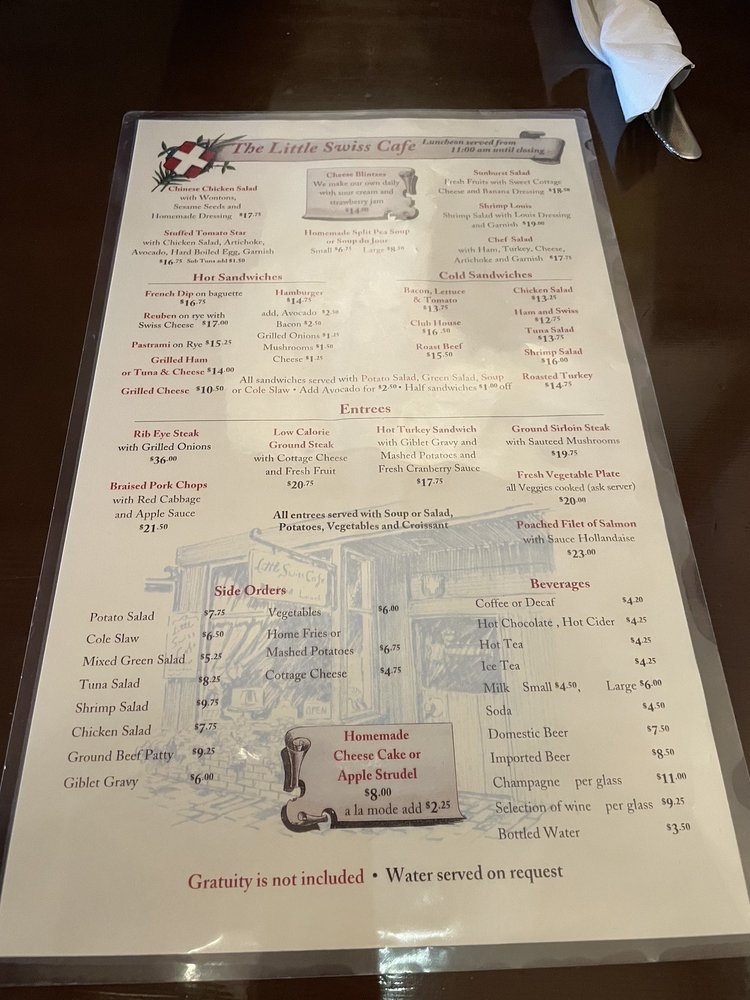 The Little Swiss Cafe
Luncheon served from
11:00 am until closing
Chinese Chicken Salad
with Wontons,
Sesame Seeds and
Homemade Dressing $17.75
Stuffed Tomato Star
with Chicken Salad, Artichoke,
Avocado, Hard Boiled Egg, Garnish
$16.75 Sub Tuna add $1.50
Cheese Blintzes
We make our own daily
with sour cream and
strawberry jam
$14.00
Homemade Split Pea Soup
or Soup du Jour
Small $6.75 Large $8.50
Sunburst Salad
Fresh Fruits with Sweet Cottage
Cheese and Banana Dressing $18.50
Shrimp Louis
Shrimp Salad with Louis Dressing
and Garnish $19.00
Chef Salad
with Ham, Turkey, Cheese,
Artichoke and Garnish $17.75
Hot Sandwiches
French Dip on baguette
$16.75
Reuben on rye with
Swiss Cheese $17.00
Pastrami on Rye $15.25
Grilled Ham
or Tuna & Cheese $14.00
Grilled Cheese $10.50
Hamburger
$14.75
add, Avocado $2.50
Bacon $2.50
Grilled Onions $1.25
Mushrooms $1.50
Cheese $1.25
Cold Sandwiches
Bacon, Lettuce
& Tomato
$13.75
Club House
$16.50
Roast Beef
$15.50
Chicken Salad
$13.25
Ham and Swiss
$12.75
Tuna Salad
$13.75
Shrimp Salad
$16.00
Roasted Turkey
$14.75
All sandwiches served with Potato Salad, Green Salad, Soup
or Cole Slaw • Add Avocado for $2.50 • Half sandwiches $1.00 off
Entrees
Rib Eye Steak
with Grilled Onions
$36.00
Braised Pork Chops
with Red Cabbage
and Apple Sauce
$21.50
Low Calorie
Ground Steak
with Cottage Cheese
and Fresh Fruit
$20.75
Hot Turkey Sandwich
with Giblet Gravy and
Mashed Potatoes and
Fresh Cranberry Sauce
$17.75
Ground Sirloin Steak
with Sauteed Mushrooms
$19.75
Fresh Vegetable Plate
all Veggies cooked (ask server)
$20.00
Poached Filet of Salmon
with Sauce Hollandaise
$23.00
All entrees served with Soup or Salad,
Potatoes, Vegetables and Croissant
Little Swiss Cafe
Side Orders
Potato Salad $7.75
Cole Slaw $6.50
Mixed Green Salad $5.25
Tuna Salad $8.25
Shrimp Salad $9.75
Chicken Salad $7.75
Ground Beef Patty $9.25
Giblet Gravy $6.00
Vegetables $6.00
Home Fries or
Mashed Potatoes $6.75
Cottage Cheese $4.75
OPEN
Homemade
Cheese Cake or
Apple Strudel
$8.00
a la mode add $2.25
Beverages
Coffee or Decaf $4.20
Hot Chocolate , Hot Cider $4.25
Hot Tea $4.25
Ice Tea $4.25
Milk Small $4.50, Large $6.00
Soda $4.50
Domestic Beer $7.50
Imported Beer $8.50
Champagne per glass $11.00
Selection of wine per glass $9.25
Bottled Water $3.50
Gratuity is not included • Water served on request